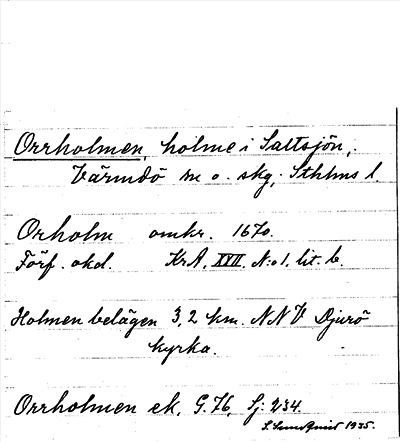 Orrholmen, holme i Saltsjön,
Värmdö sn o. skg, Sthlms l.
Orholm omkr. 1670.
Förf. okd. KrA, XVII. N:o 1. lit. b.
Holmen belägen 3,2 km. NNV Djurö
kyrka.
Orrholmen ek, G. 76, Sj: 234.
S. Sundqvist 1935.